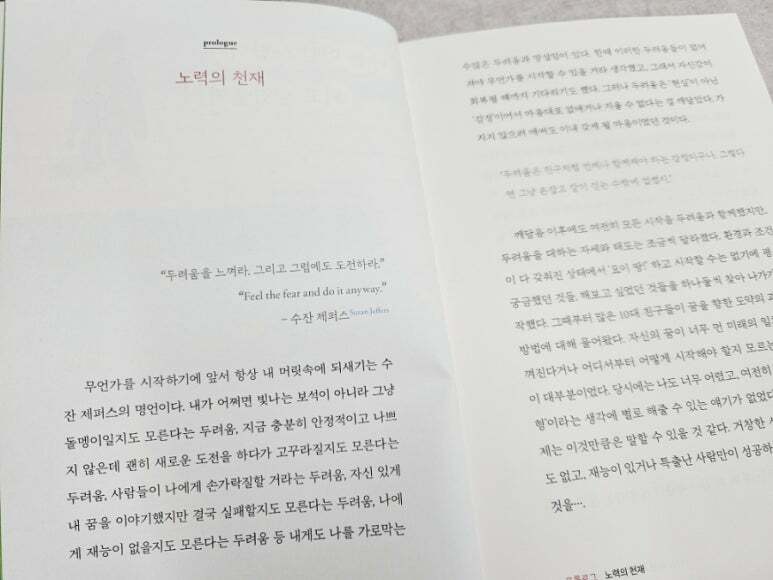 prologue
노력의 천재
“두려움을 느껴라. 그리고 그럼에도 도전하라.”
“Feel the fear and do it anyway.”
– 수잔 제퍼스 Susan Jeffers
무언가를 시작하기에 앞서 항상 내 머릿속에 되새기는 수
잔 제퍼스의 명언이다. 내가 어쩌면 빛나는 보석이 아니라 그냥
돌멩이일지도 모른다는 두려움, 지금 충분히 안정적이고 나쁘
지 않은데 괜히 새로운 도전을 하다가 고꾸라질지도 모른다는
두려움, 사람들이 나에게 손가락질할 거라는 두려움, 자신 있게
내 꿈을 이야기했지만 결국 실패할지도 모른다는 두려움, 나에
게 재능이 없을지도 모른다는 두려움 등 내게도 나를 가로막는
수많은 두려움과 망설임이 있다. 한때 이러한 두려움들이 없어
져야 무언가를 시작할 수 있을 거라 생각했고, 그래서 자신감이
회복될 때까지 기다리기도 했다. 그러나 두려움은 ‘현실’이 아닌
‘감정’이어서 마음대로 없애거나 지울 수 없다는 걸 깨달았다. 가
지지 않으려 애써도 이내 갖게 될 마음이었던 것이다.
‘두려움은 친구처럼 언제나 함께해야 하는 감정이구나. 그렇다
면 그냥 손잡고 같이 걷는 수밖에 없겠지.’
깨달음 이후에도 여전히 모든 시작을 두려움과 함께했지만,
두려움을 대하는 자세와 태도는 조금씩 달라졌다. 환경과 조건
이 다 갖춰진 상태에서 ‘요이 땅!’ 하고 시작할 수는 없기에 평
궁금했던 것들, 해보고 싶었던 것들을 하나둘씩 찾아 나가기
작했다. 그때부터 많은 10대 친구들이 꿈을 향한 도약의 과
방법에 대해 물어왔다. 자신의 꿈이 너무 먼 미래의 일
껴진다거나 어디서부터 어떻게 시작해야 할지 모르는
이 대부분이었다. 당시에는 나도 너무 어렸고, 여전히
형’이라는 생각에 별로 해줄 수 있는 얘기가 없었다
제는 이것만큼은 말할 수 있을 것 같다. 거창한 시
도 없고, 재능이 있거나 특출난 사람만이 성공하
것을….
프롤로그 노력의 천재